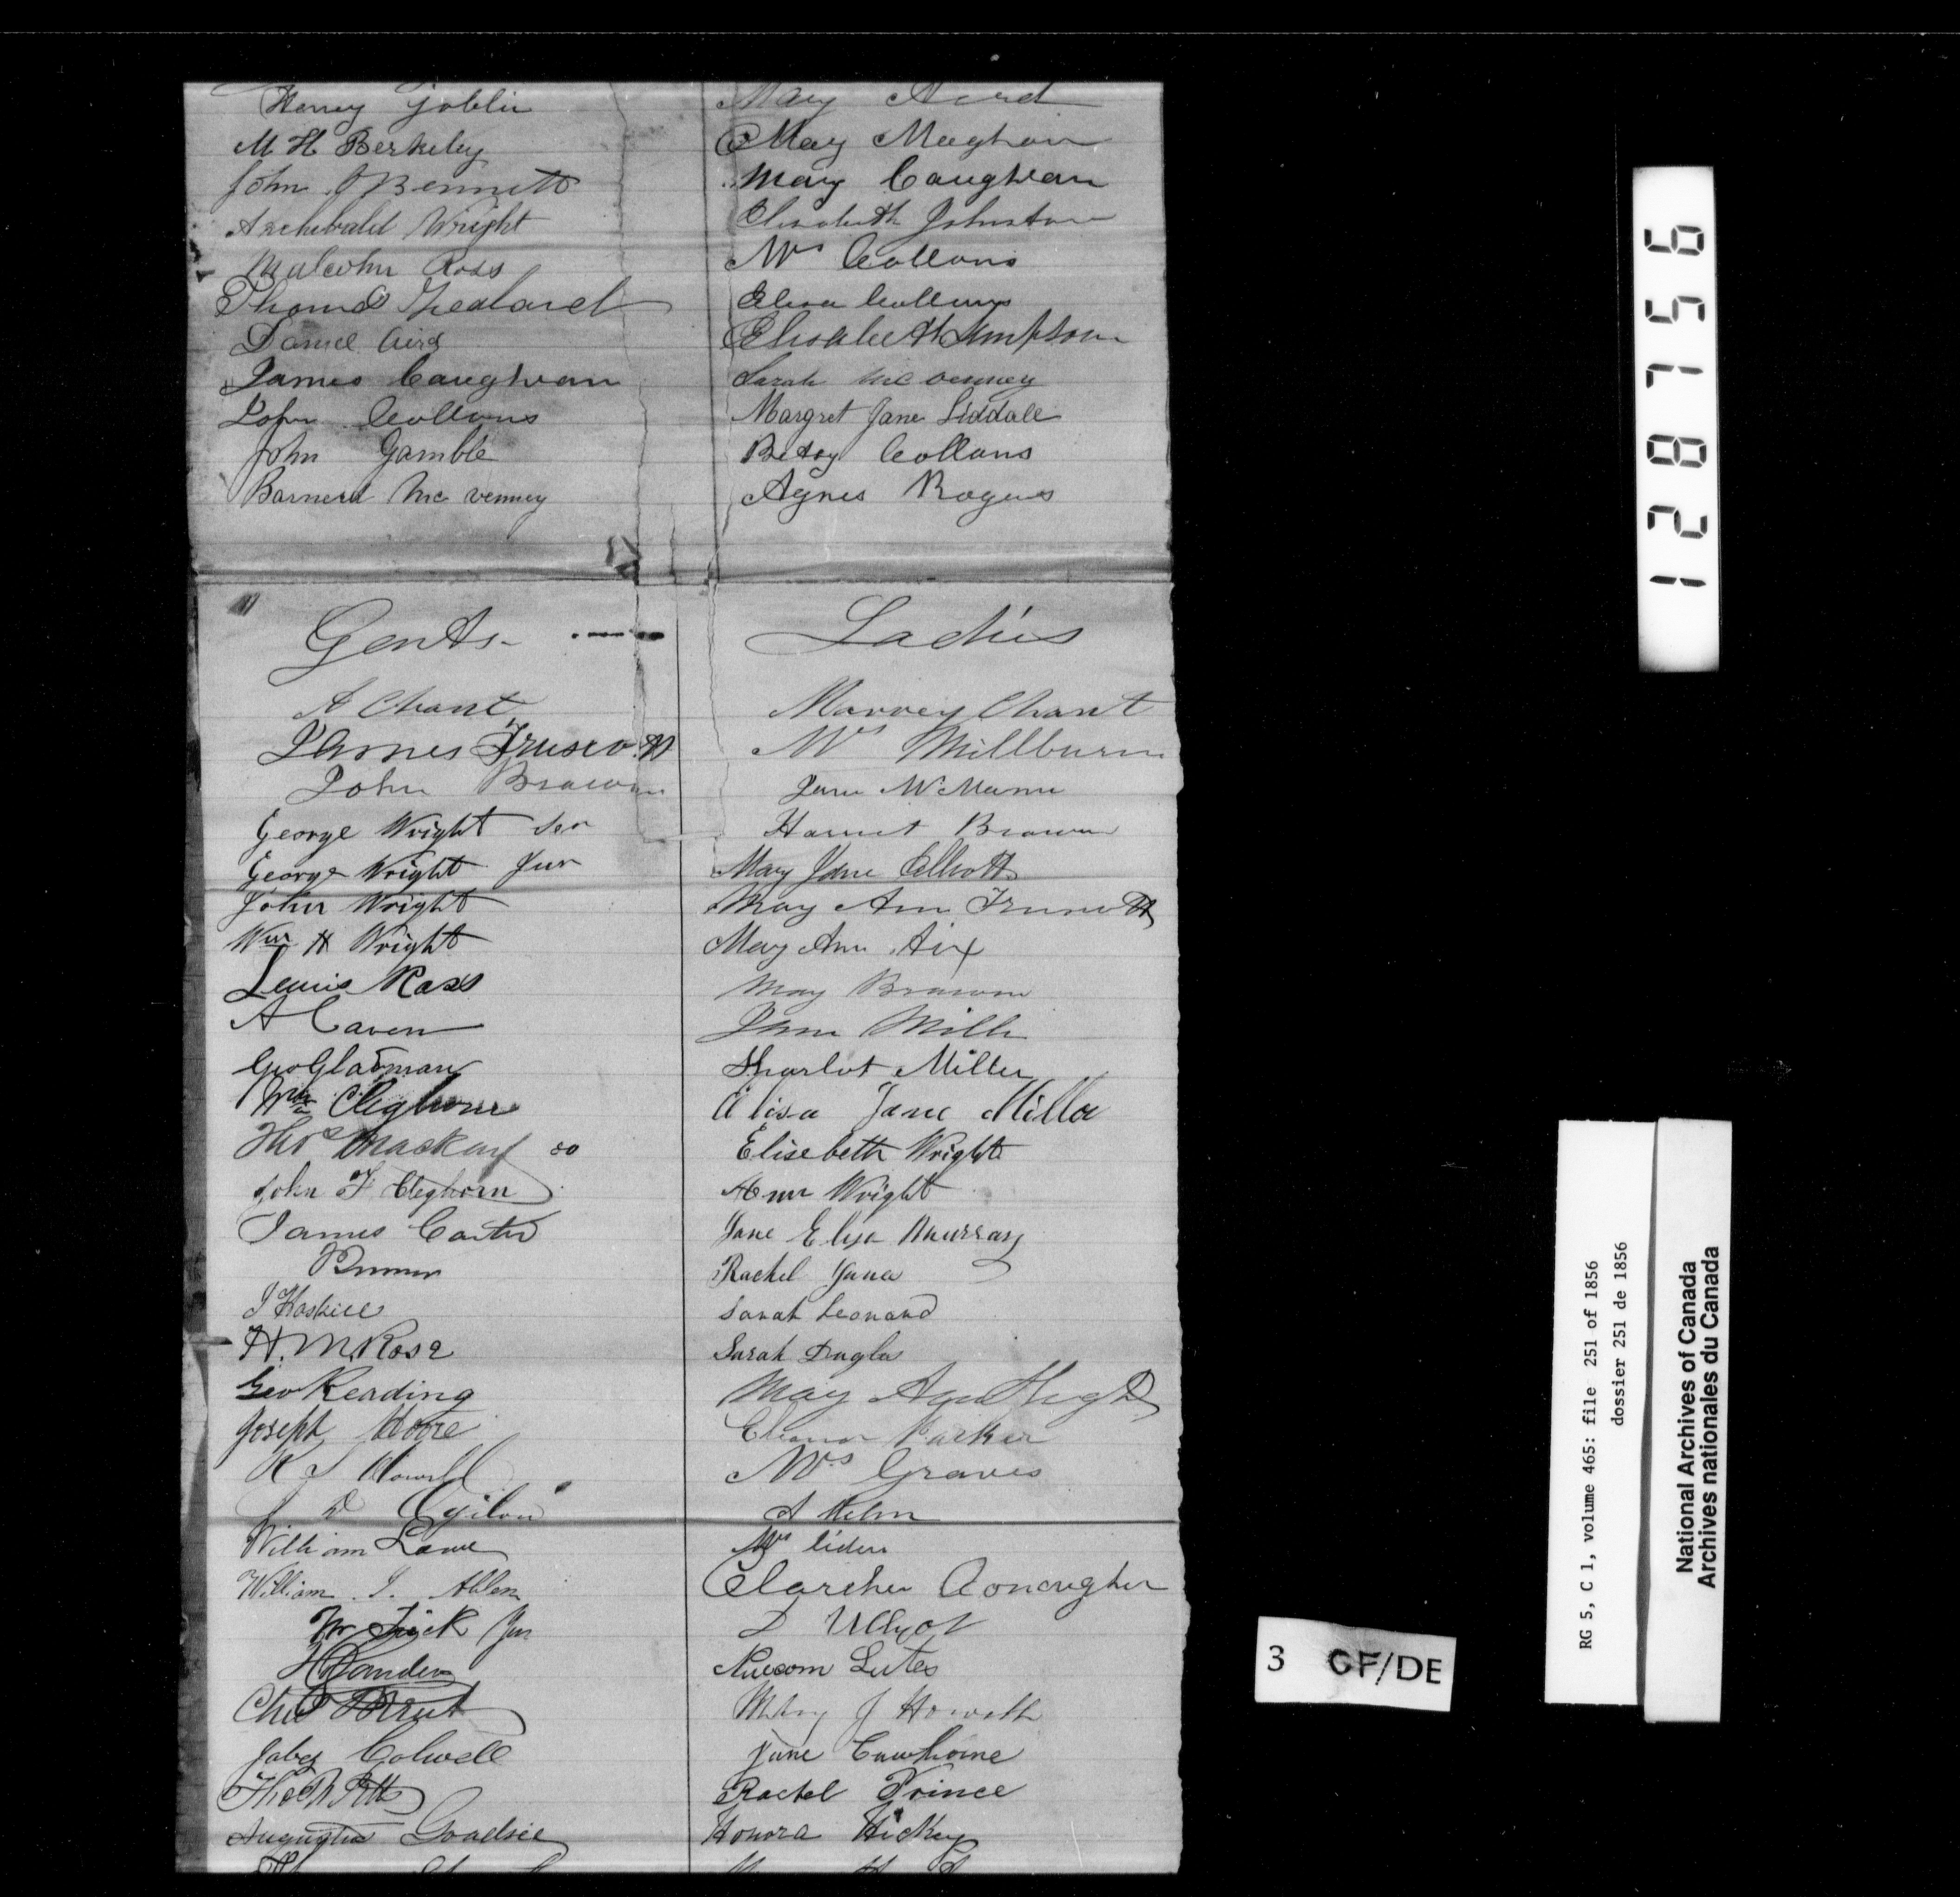 Henry Goblin
M H Berkeley
John Bennett
Archebald Wright
Malcohn Ross
Thomas
Daniel Aird
James Caughran
John Collans
John Gamble
Barnerd Mc venney
Mary Aird
Mary Maghan
Mary Caughran
Elisabeth Johnston
Mrs Collans
Elisa Collans
Elisabeth Simpson
Sarah Mc venney
Margret Jane Liddale
Betsy Collans
Agnes Rogers
Gents-
A Chant
James
John Brown
George Wright Sen
George Wright Jun
John Wright
Wm H Wright
Lewis Ross
A Caven
Geo Gladman
Wm Cleghorn
Thos Mackay
John F Cleghorn
James Carter
J Haskill
H. M Rose
Geo Reading
Joseph Moore
R S Howell
D Ogilvy
William Lowe
William J. Allen
Jun
Jabez Colwell
Ladies
Chant
Mrs Millburn
Jane McMann
Harriet Brown
Mary Jane Elliott
Mary Ann
Mary Ann
May Brown
Jane Mills
Sharlot Miller
Elisa Jane Miller
Elisebeth Wright
Ann Wright
Jane Elisa Murray
Rachel Jane
Sarah Leonard
Sarah Duglas
May
Eleanor Parker
Mrs Graves
A Helm
Mrs
Lutes
Mary J Howell
Jane Cawthorne
Rachel Prince
Honora Hickey
128756
RG 5, C 1, volume 465: file 251 of 1856
dossier 251 de 1856
National Archives of Canada
Archives nationales du Canada
3 GF/DE